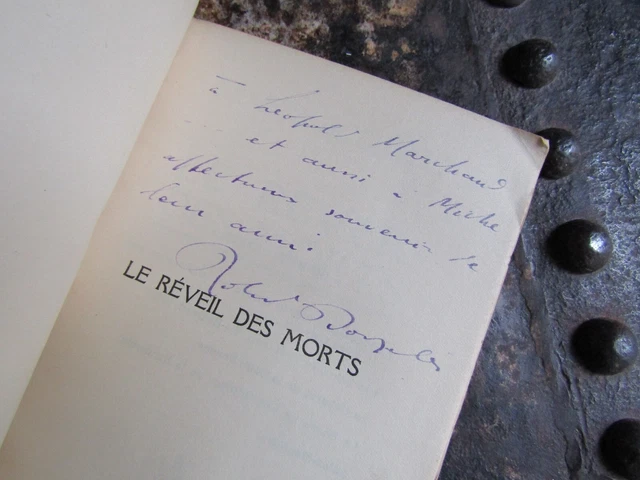 à Léopold Marchand
et aussi à Miche
affectueux souvenir de
leur ami
Roland Dorgelès
LE RÉVEIL DES MORTS